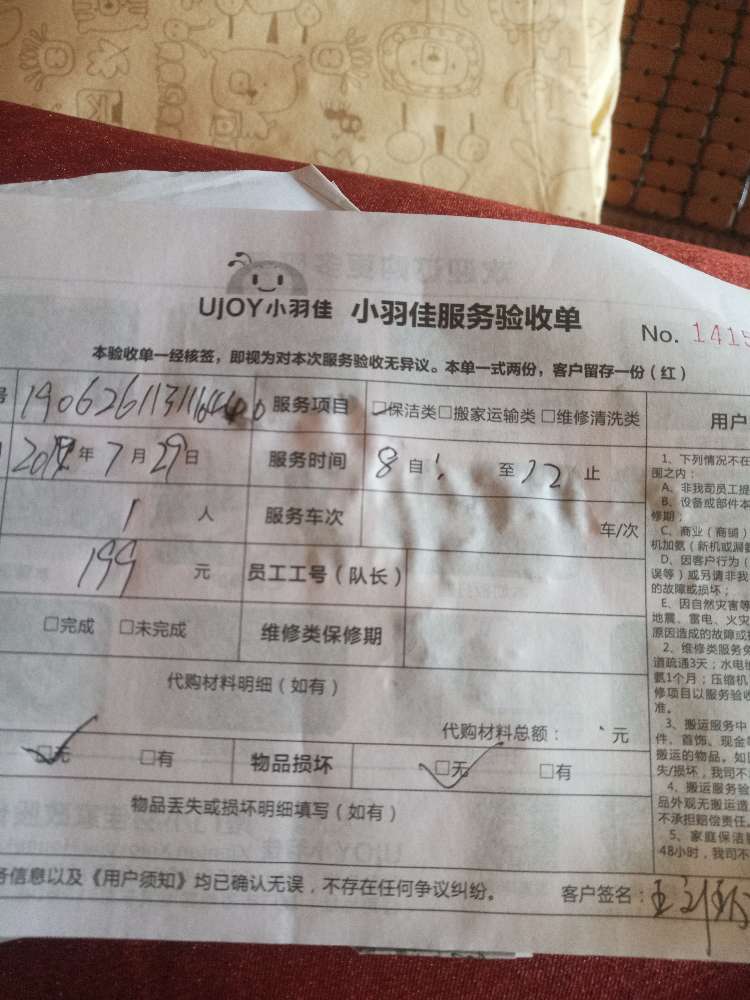 UJOY小羽佳 小羽佳服务验收单
No. 1415
本验收单一经核签，即视为对本次服务验收无异议。本单一式两份，客户留存一份（红）
号 服务项目 □保洁类□搬家运输类 □维修清洗类
年 7 月 29 日 服务时间 8 自 至 12 止
1 人 服务车次 车/次
199 元 员工工号（队长）
□完成 □未完成 维修类保修期
代购材料明细（如有）
代购材料总额： 元
□无 □有 物品损坏 □无 □有
物品丢失或损坏明细填写（如有）
务信息以及《用户须知》均已确认无误，不存在任何争议纠纷。 客户签名：
用户
1、下列情况不在
围之内：
A、非我司员工提
B、设备或部件本
修期；
C、商业（商铺）
机加氨（新机或漏氨
D、因客户行为（
误等）或另请非我
的故障或损坏；
E、因自然灾害等
地震、雷电、火灾
原因造成的故障或损
2、维修类服务免
道疏通3天；水电维
氨1个月；压缩机
修项目以服务验收
准。
3、搬运服务中
件、首饰、现金等
搬运的物品。如因
失/损坏，我司不
4、搬运服务验
品外观无搬运造
不承担赔偿责任。
5、家庭保洁服
48小时，我司不